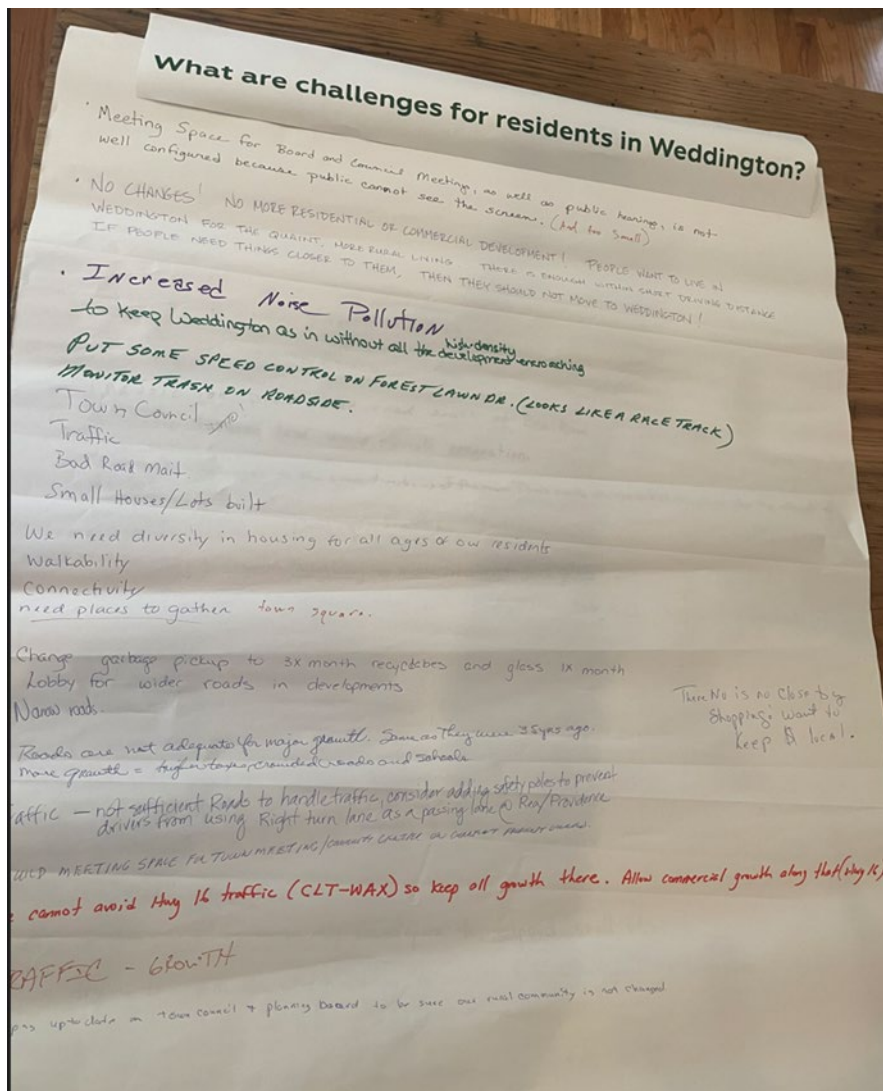 What are challenges for residents in Weddington?
· Meeting Space for Board and Council Meetings, as well as public hearings, is not
well configured because public cannot see the screens. (And too small)
· NO CHANGES! NO MORE RESIDENTIAL OR COMMERCIAL DEVELOPMENT! PEOPLE WANT TO LIVE IN
WEDDINGTON FOR THE QUAINT, MORE RURAL LIVING THERE IS ENOUGH WITHIN SHORT DRIVING DISTANCE
IF PEOPLE NEED THINGS CLOSER TO THEM, THEN THEY SHOULD NOT MOVE TO WEDDINGTON!
· Increased Noise Pollution
to keep Weddington as in without all the high-density development encroaching
PUT SOME SPEED CONTROL ON FOREST LAWN DR. (LOOKS LIKE A RACE TRACK)
MONITOR TRASH ON ROADSIDE.
Town Council
Traffic
Bad Road Mait.
Small Houses/Lots built
We need diversity in housing for all ages of our residents
Walkability
Connectivity
need places to gather town square.
Change garbage pickup to 3x month and glass 1x month
Lobby for wider roads in developments
Narrow roads.
There No is no Close by
Shopping: want to
keep $ local.
Roads are not adequate for major growth. Same as they were 35yrs ago.
more growth = higher taxes, crowded roads and schools
affic — not sufficient Roads to handle traffic, consider adding safety poles to prevent
drivers from using Right turn lane as a passing lane @ Rea/Providence
MEETING SPACE FOR TOWN MEETING/
cannot avoid Hwy 16 traffic (CLT-WAX) so keep all growth there. Allow commercial growth along that (Hwy 16)
RAFFIC - GROWTH
up to date on town council + planning board to be sure our rural community is not changed